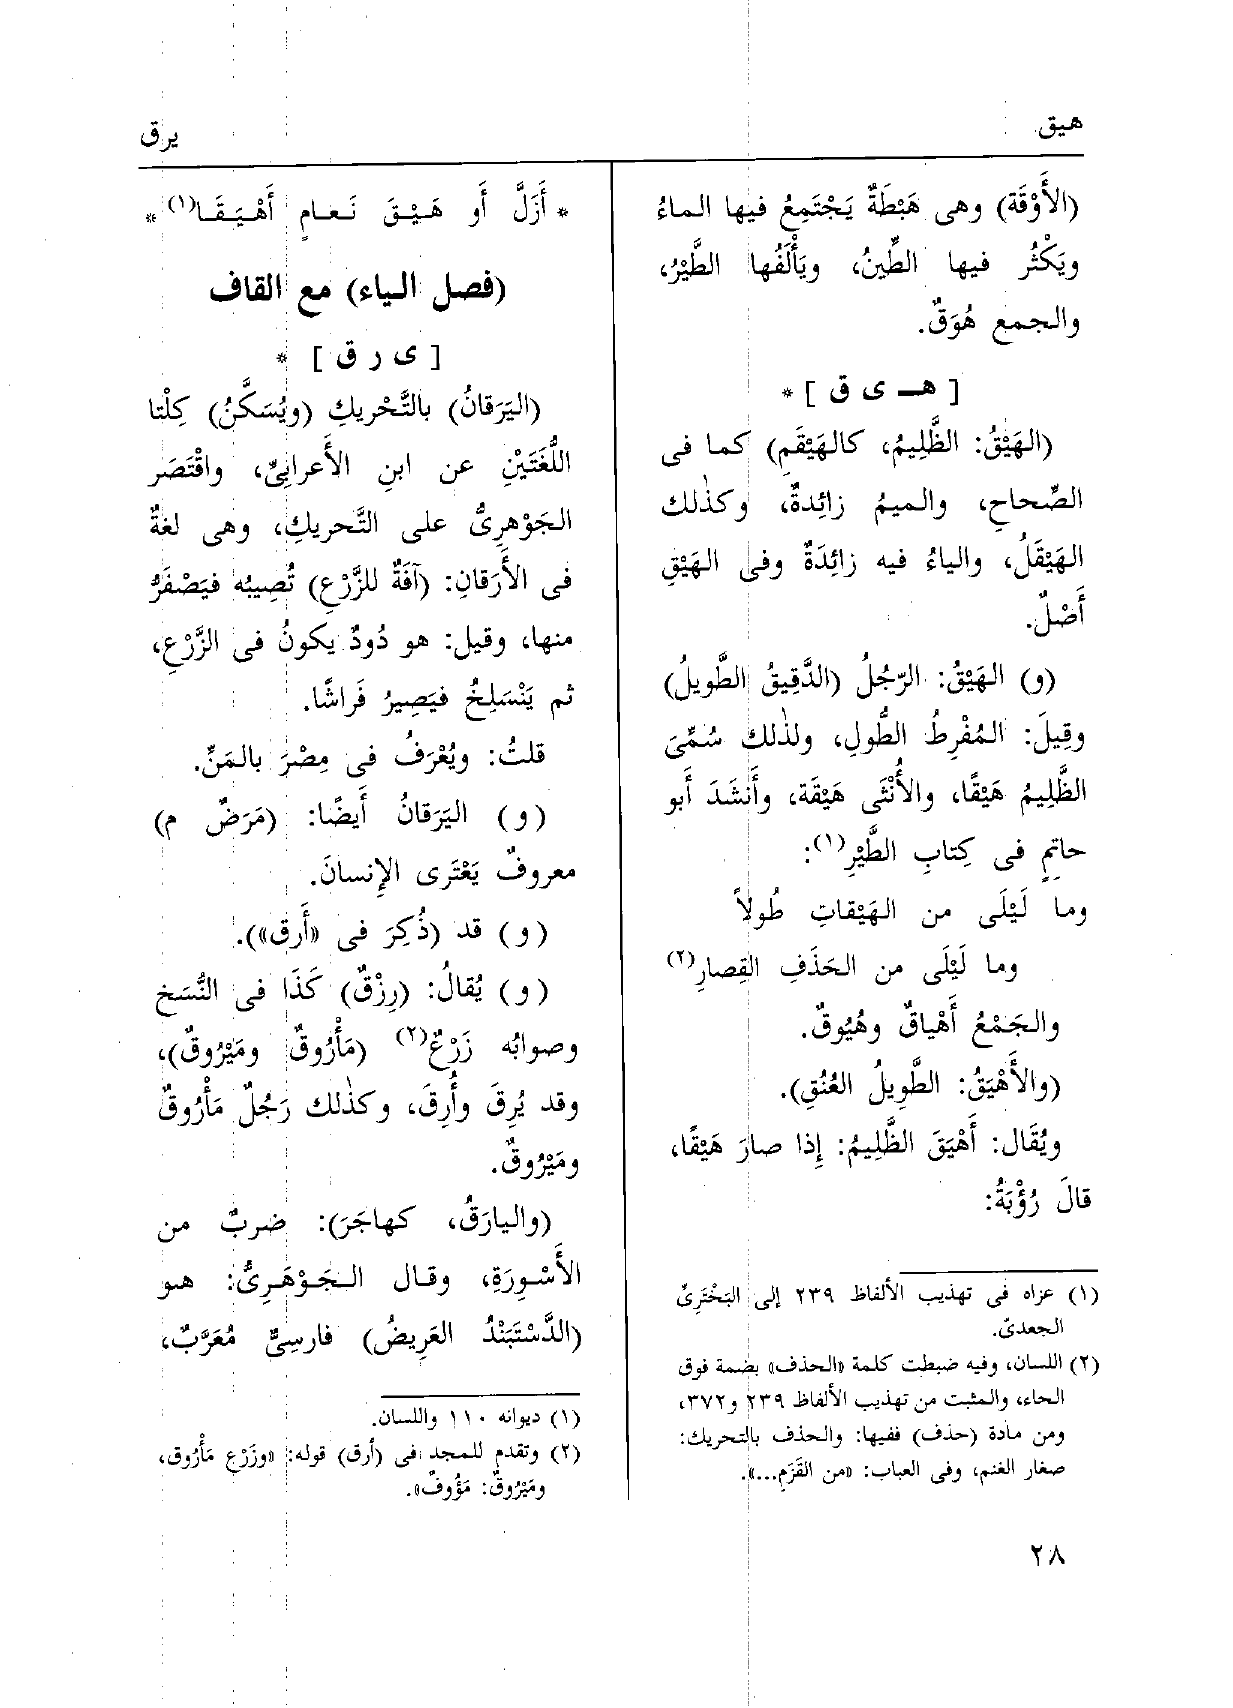 هيق
يرق
(الأَوْقَة) وهى هَبْطَةٌ يَجْتَمِعُ فيها الماءُ
ويَكْثُر فيها الطِّينُ، ويَأْلَفُها الطَّيْرُ،
والجمع هُوَقٌ.
[ هـ ى ق ] *
(الهَيْقُ: الظَّلِيمُ، كالهَيْقَمِ) كما فى
الصِّحاحِ، والميمُ زائِدةٌ، وكذٰلك
الهَيْقَلُ، والياءُ فيه زائِدَةٌ وفى الهَيْقِ
أَصْلٌ.
(و) الهَيْقُ: الرّجُلُ (الدَّقِيقُ الطَّويلُ)
وقِيلَ: المُفْرِطُ الطُّولِ، ولذٰلك سُمِّىَ
الظَّلِيمُ هَيْقًا، والأُنْثَى هَيْقَة، وأَنشَدَ أَبو
حاتِمٍ فى كِتابِ الطَّيْرِ(١):
وما لَيْلَى من الهَيْقاتِ طُولاً
وما لَيْلَى من الحَذَفِ القِصارِ(٢)
والجَمْعُ أَهْياقٌ وهُيُوقٌ.
(والأَهْيَقُ: الطَّوِيلُ العُنُقِ).
ويُقَال: أَهْيَقَ الظَّلِيمُ: إِذا صارَ هَيْقًا،
قالَ رُؤْبَةُ:
(١) عزاه فى تهذيب الألفاظ ٢٣٩ إلى البَخْتَرِىّ
الجعدىّ.
(٢) اللسان، وفيه ضبطت كلمة «الحذف» بضمة فوق
الحاء، والمثبت من تهذيب الألفاظ ٢٣٩ و٣٧٢،
ومن مادة (حذف) ففيها: والحذف بالتحريك:
صغار الغنم، وفى العباب: «من القَزَمِ...».
* أَزَلَّ أَو هَيْقَ نَعامٍ أَهْيَقَا(١) *
(فصل الياء) مع القاف
[ ى ر ق ] *
(اليَرَقانُ) بالتَّحْريكِ (ويُسَكَّنُ) كِلْتا
اللُّغَتَيْنِ عن ابنِ الأَعرابِىِّ، واقْتَصَر
الجَوْهرِىُّ على التَّحريكِ، وهى لغةٌ
فى الأَرَقانِ: (آفَةٌ للزَّرْعِ) تُصِيبُه فيَصْفَرُّ
منها، وقيل: هو دُودٌ يكونُ فى الزَّرْعِ،
ثم يَنْسَلِخُ فيَصِيرُ فَراشًا.
قلتُ: ويُعْرَفُ فى مِصْرَ بالمَنِّ.
(و) اليَرَقانُ أَيضًا: (مَرَضٌ م)
معروفٌ يَعْتَرى الإِنسانَ.
(و) قد (ذُكِرَ فى «أَرق»).
(و) يُقالُ: (رِزْقٌ) كَذَا فى النُّسَخِ
وصوابُه زَرْعٌ(٢) (مَأْرُوقٌ ومَيْرُوقٌ)،
وقد يُرِقَ وأُرِقَ، وكذٰلك رَجُلٌ مَأْرُوقٌ
ومَيْرُوقٌ.
(واليارَقُ، كهاجَرَ): ضربٌ من
الأَسْوِرَةِ، وقال الجَوْهَرِىُّ: هو
(الدَّسْتَبَنْدُ العَرِيضُ) فارسِىٌّ مُعَرَّبٌ،
(١) ديوانه ١١٠ واللسان.
(٢) وتقدم للمجد فى (أرق) قوله: «وزَرْع مَأْرُوق،
ومَيْرُوقٌ: مَؤُوفٌ».
٢٨